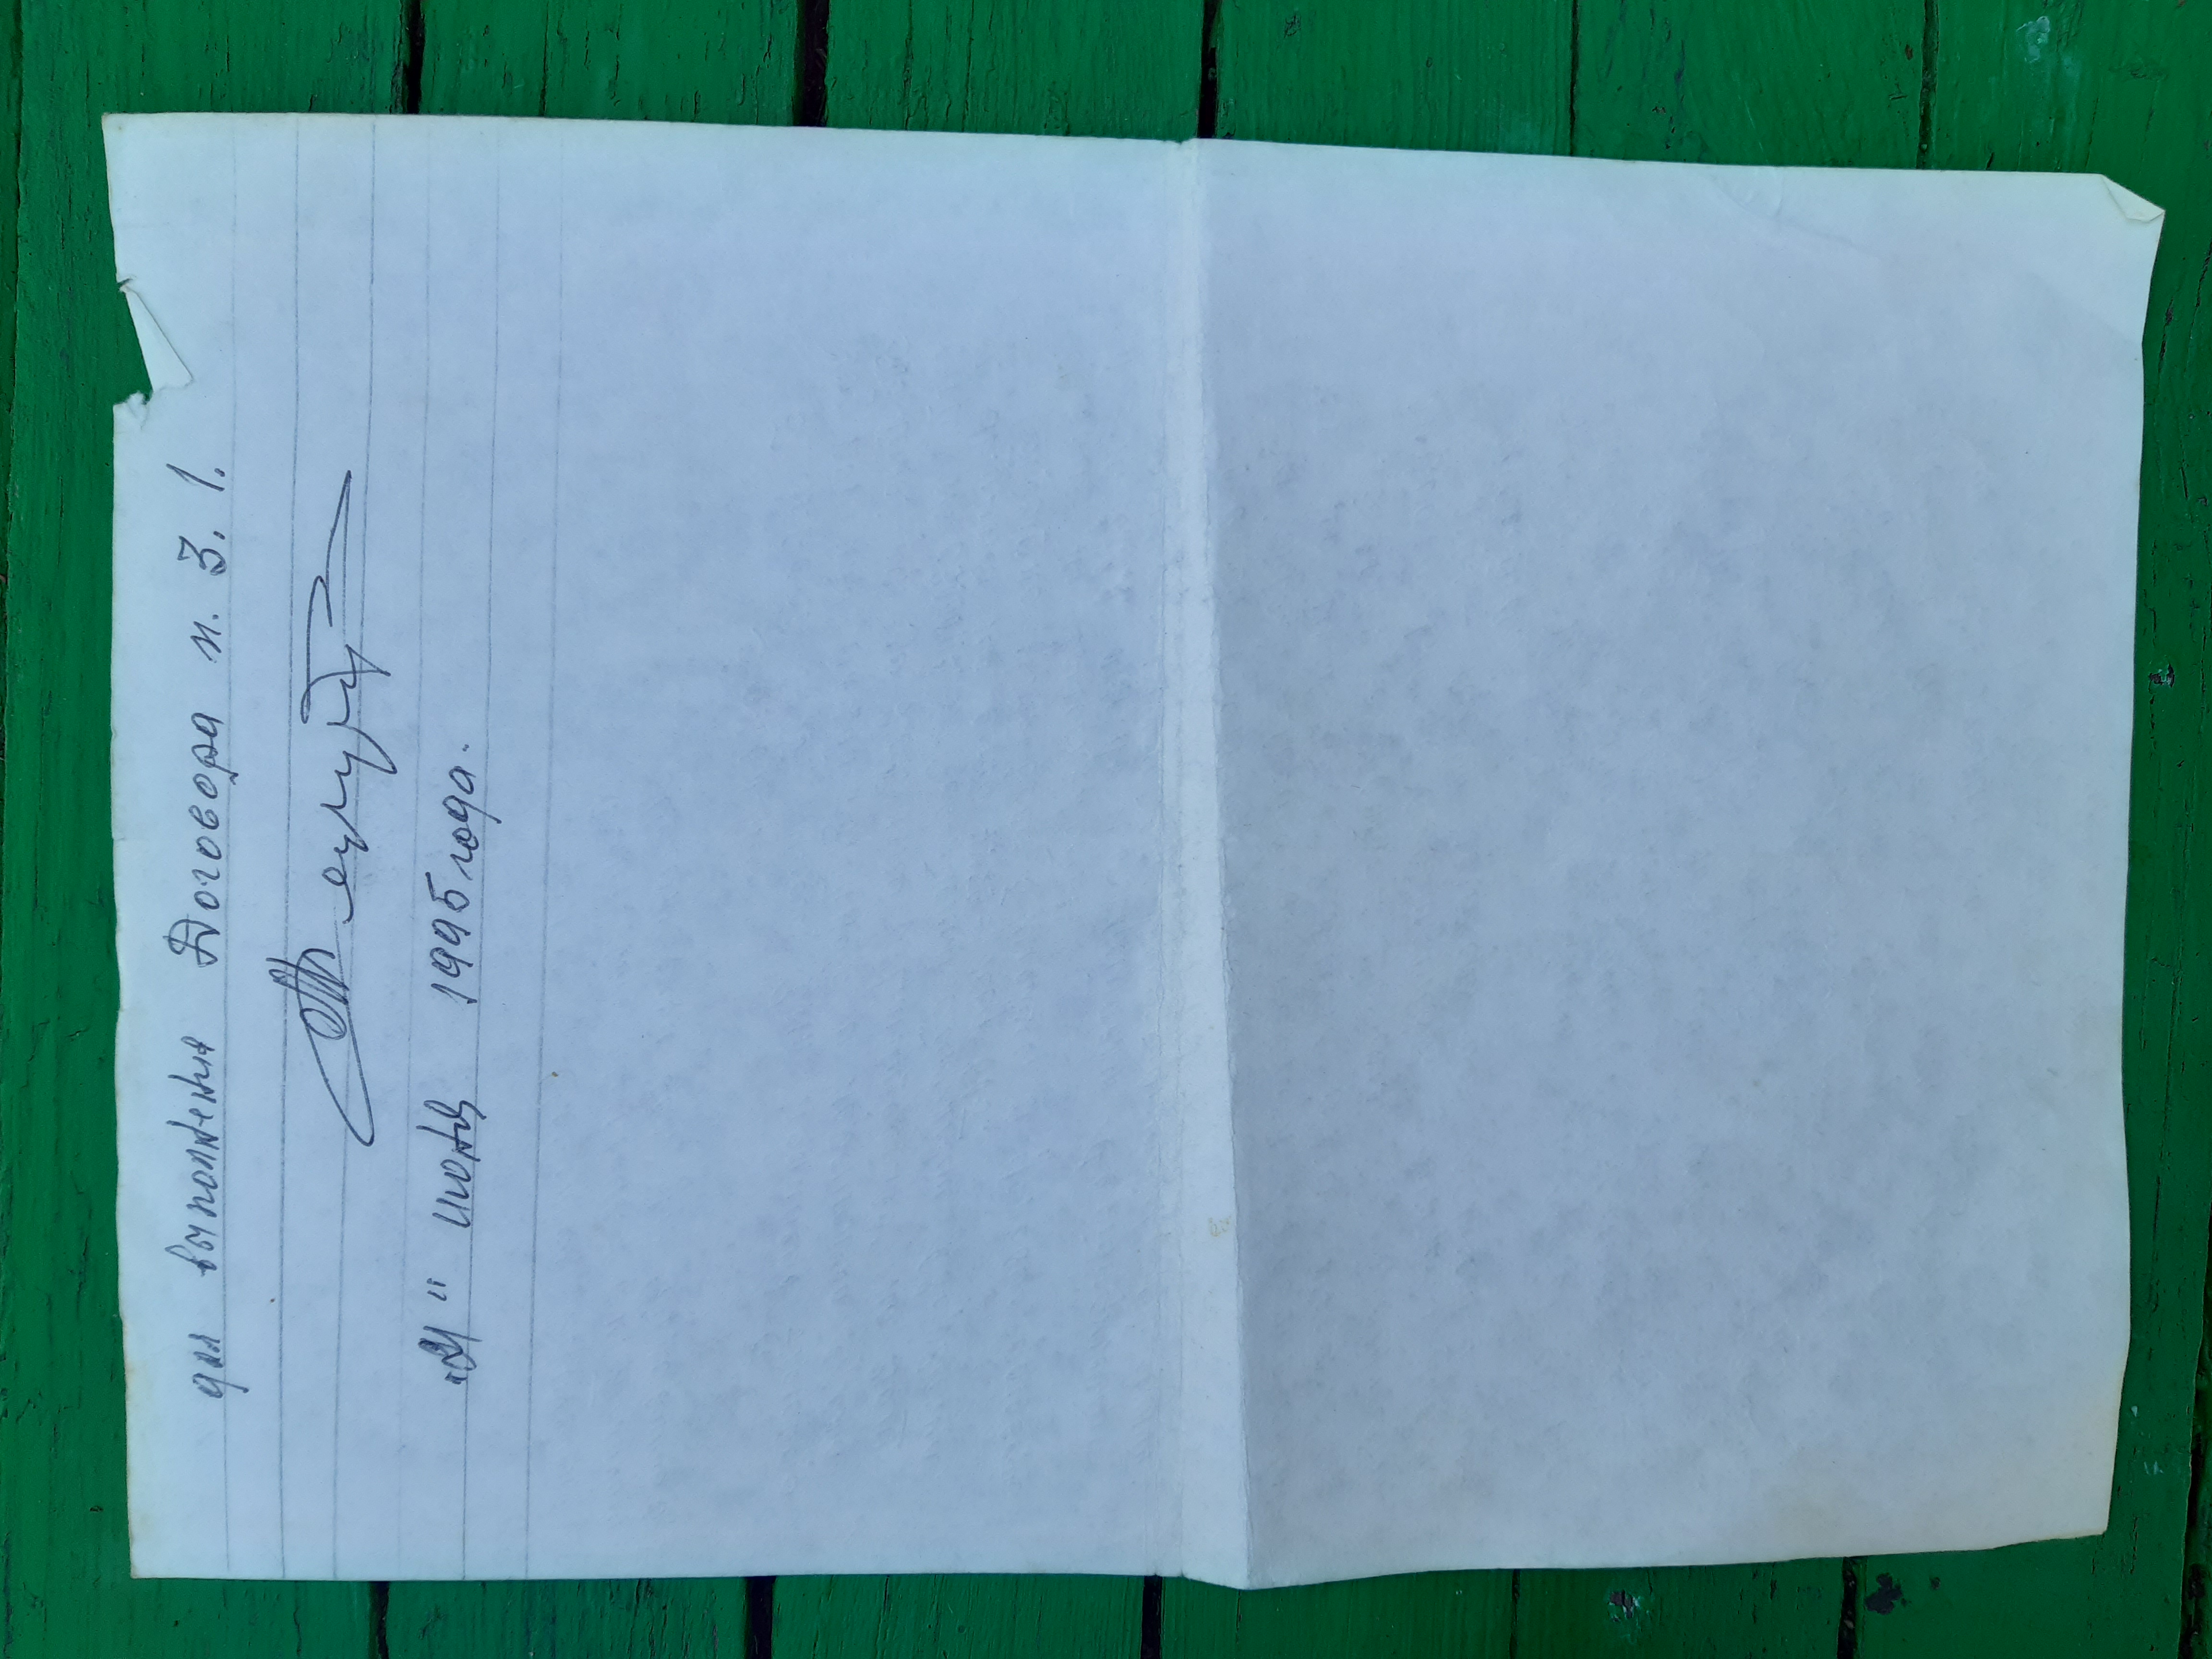 для выполнения Договора п. 3. 1.
"21" июня 1995 года.